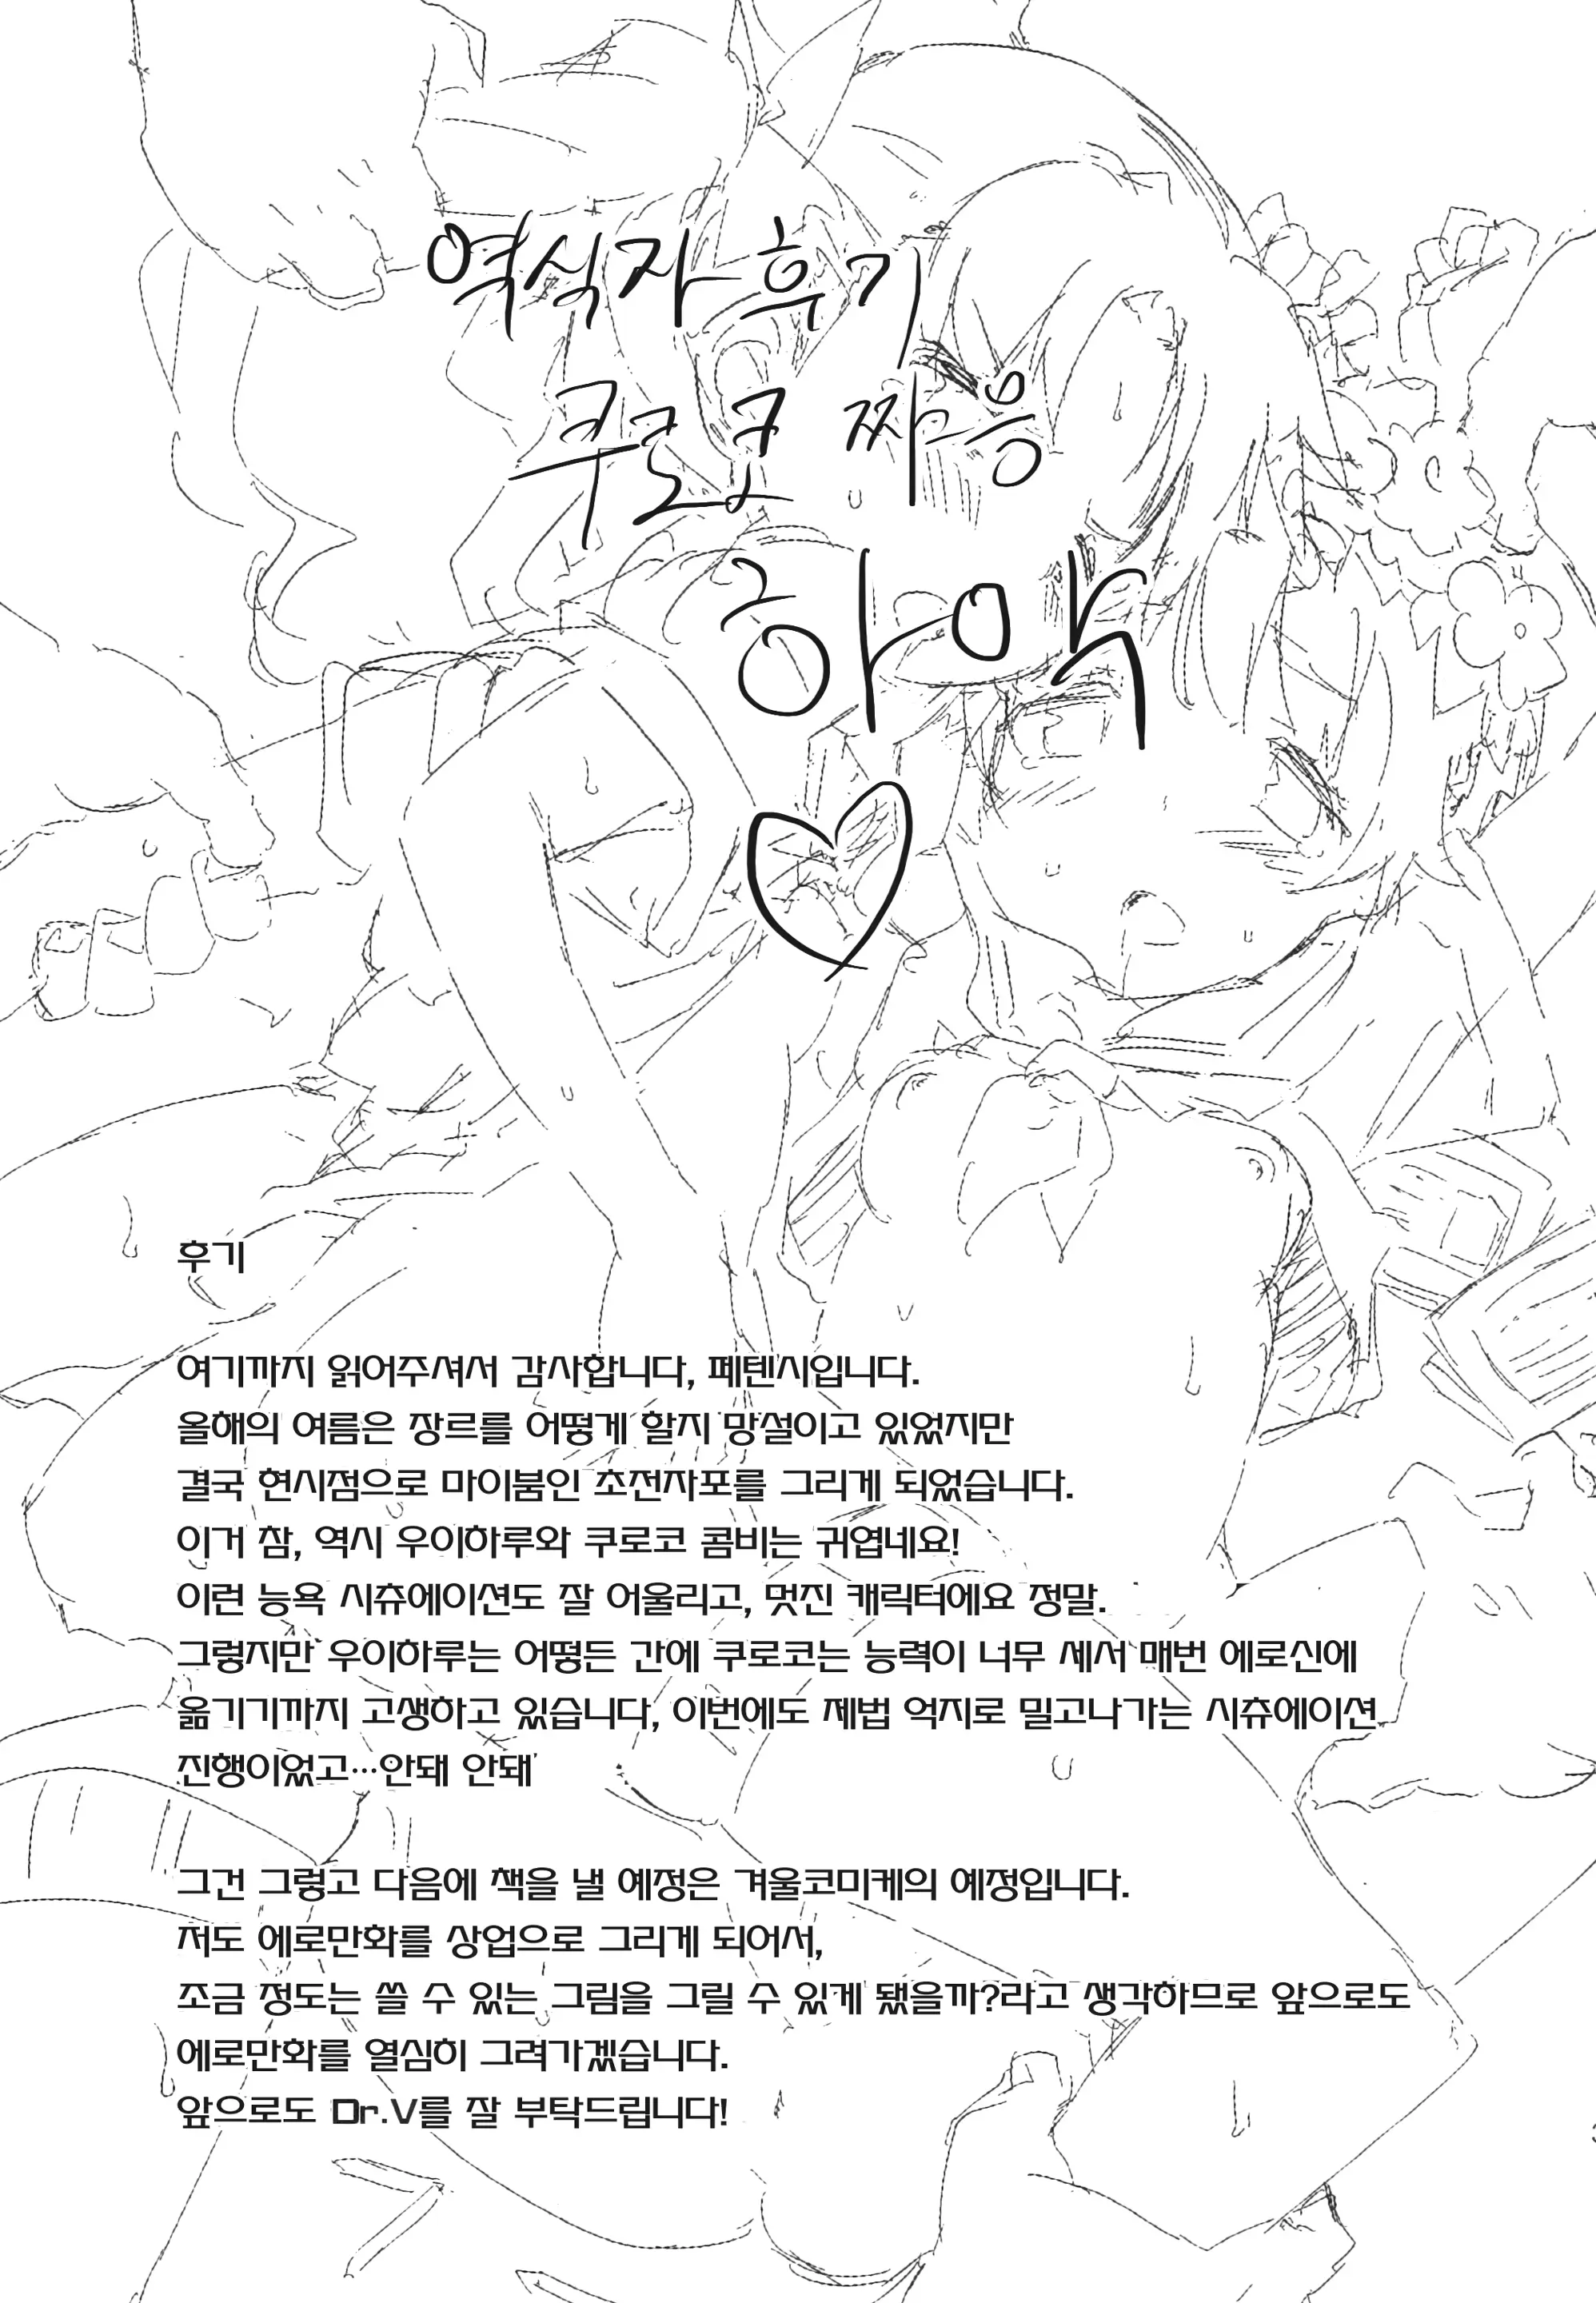 역식자 후기
쿠로코 짜응
하악
후기
여기까지 읽어주셔서 감사합니다, 페텐시입니다.
올해의 여름은 장르를 어떻게 할지 망설이고 있었지만
결국 현시점으로 마이붐인 초전자포를 그리게 되었습니다.
이거 참, 역시 우이하루와 쿠로코 콤비는 귀엽네요!
이런 능욕 시츄에이션도 잘 어울리고, 멋진 캐릭터에요 정말.
그렇지만 우이하루는 어떻든 간에 쿠로코는 능력이 너무 세서 매번 에로신에
옮기기까지 고생하고 있습니다, 이번에도 제법 억지로 밀고나가는 시츄에이션
진행이었고…안돼 안돼
그건 그렇고 다음에 책을 낼 예정은 겨울코미케의 예정입니다.
저도 에로만화를 상업으로 그리게 되어서,
조금 정도는 쓸 수 있는 그림을 그릴 수 있게 됐을까?라고 생각하므로 앞으로도
에로만화를 열심히 그려가겠습니다.
앞으로도 Dr.V를 잘 부탁드립니다!